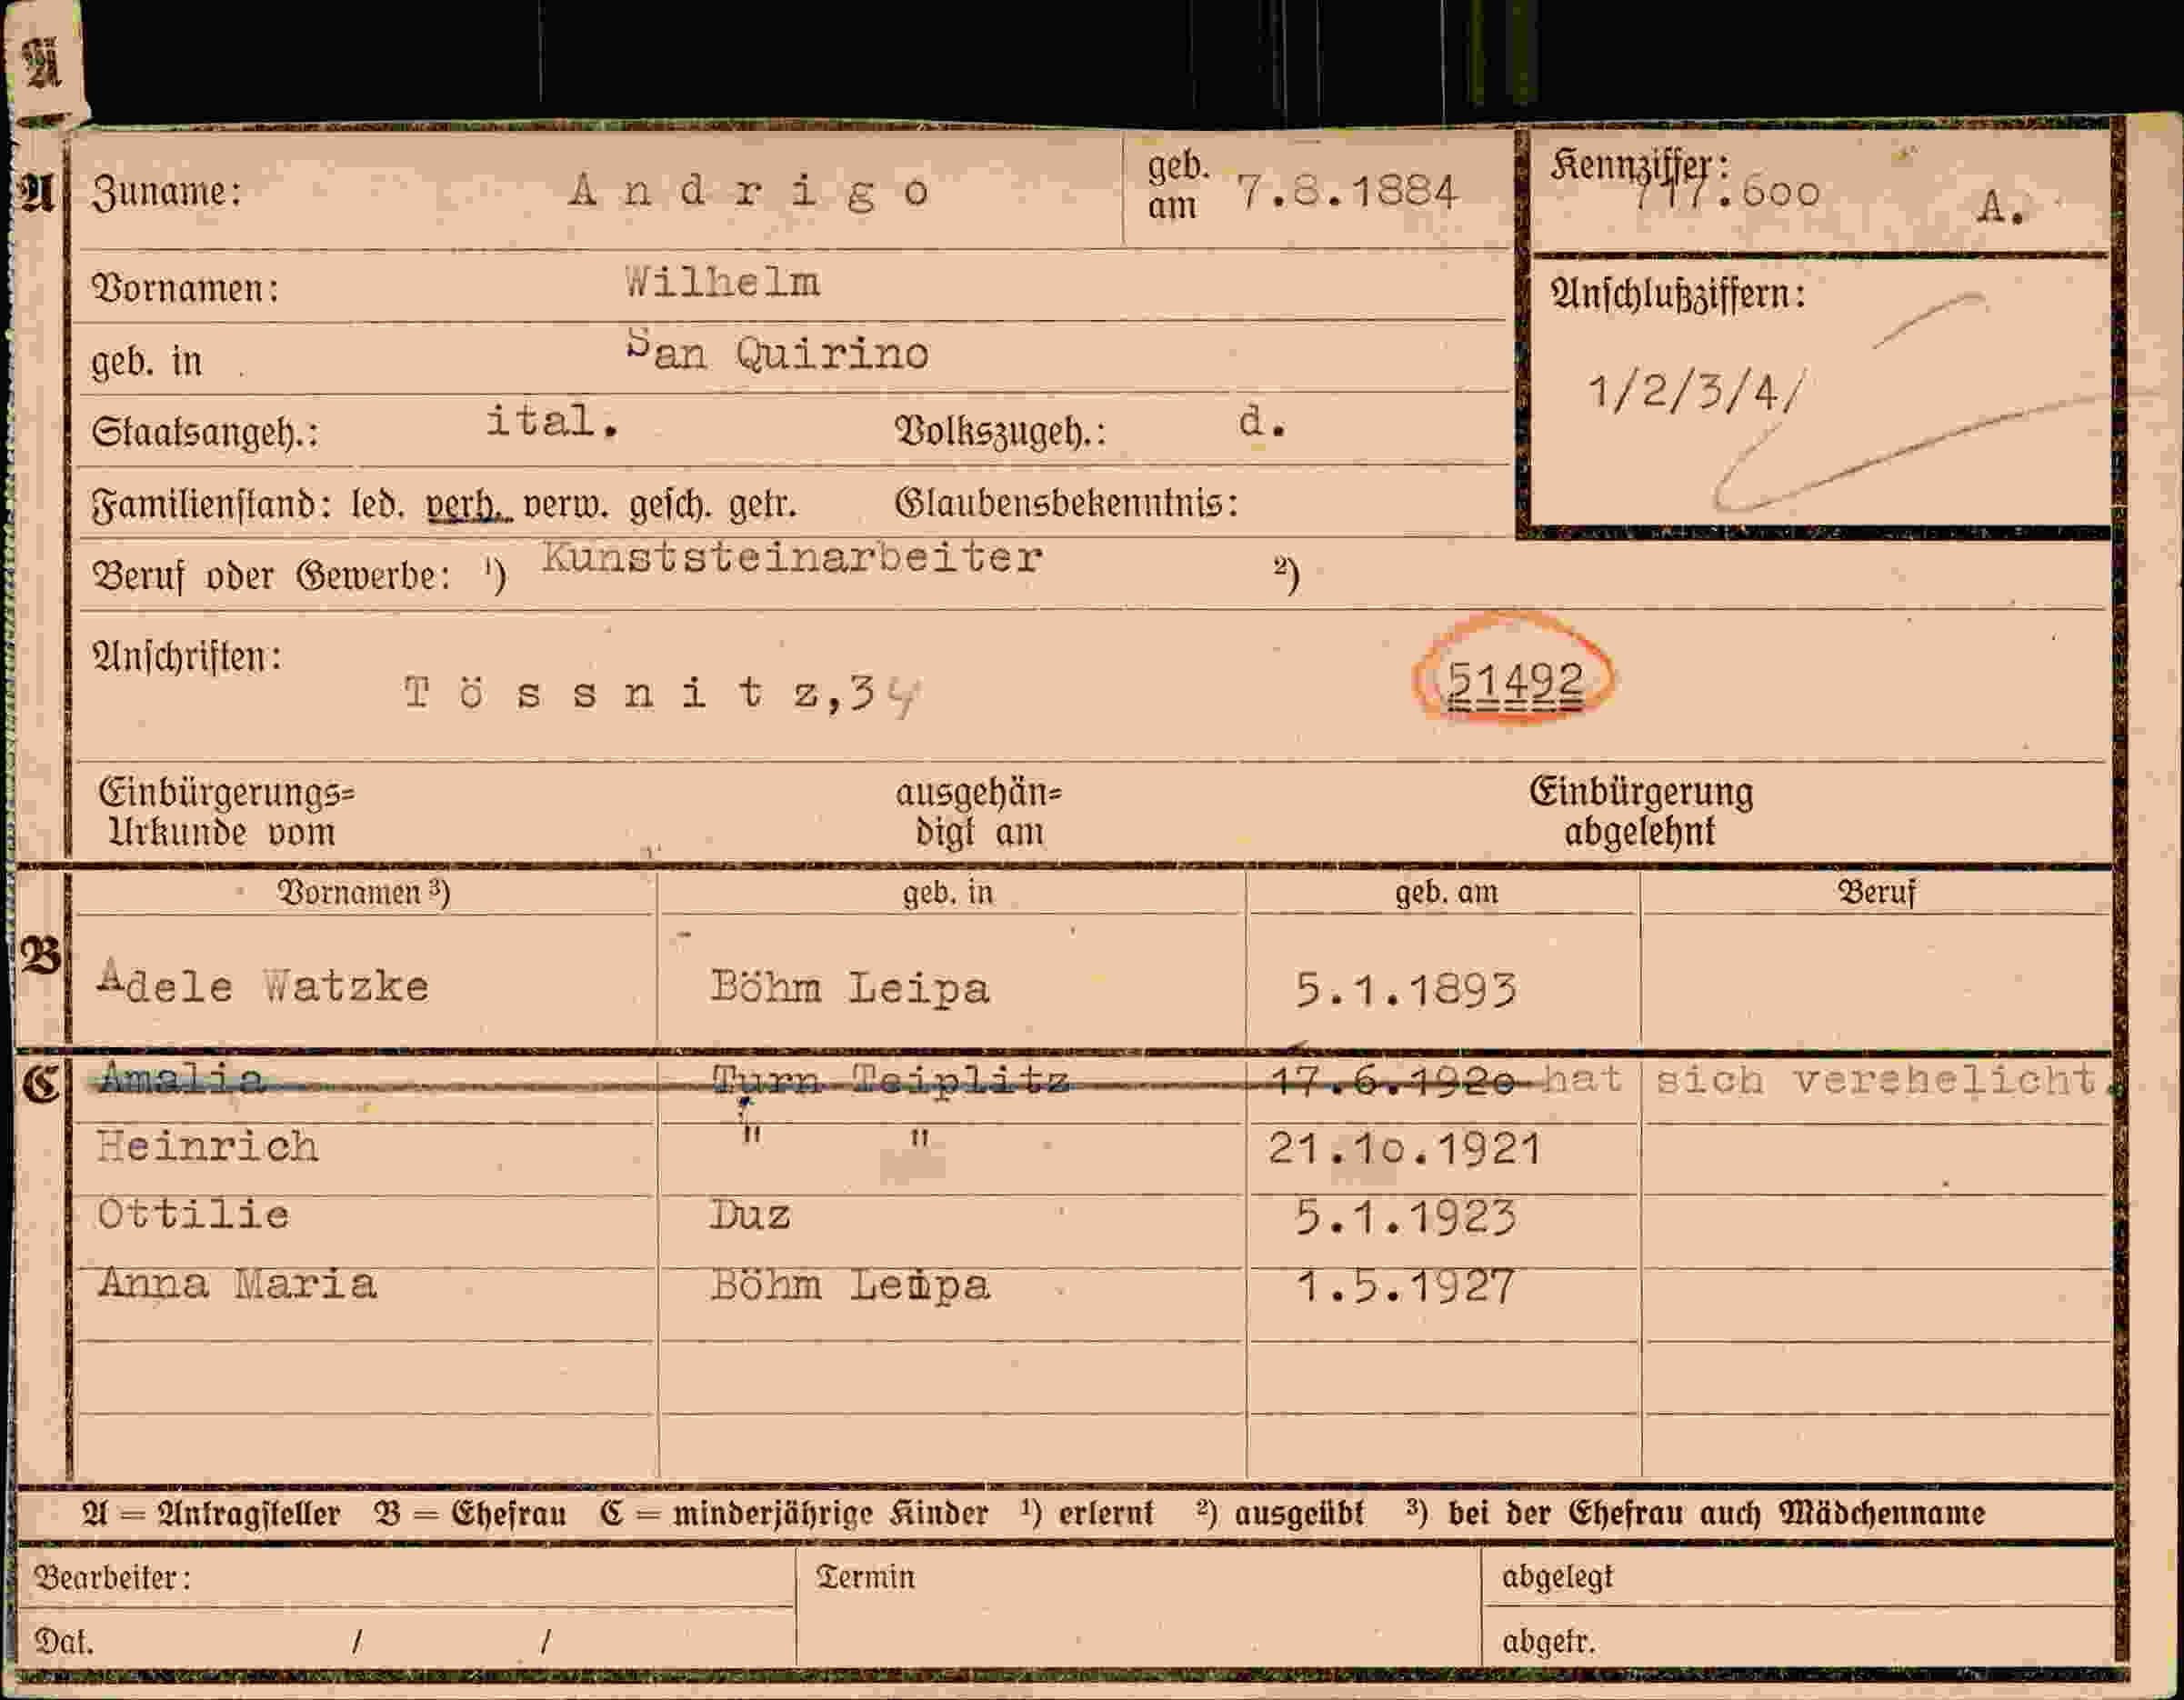 A
A Zuname: Andrigo geb. am 7.8.1884 Kennziffer: 717.600 A.
Vornamen: Wilhelm Anschlußziffern:
geb. in San Quirino
1/2/3/4/
Staatsangeh.: ital. Volkszugeh.: d.
Familienstand: led. verh. verw. gesch. getr. Glaubensbekenntnis:
Beruf oder Gewerbe: ¹) Kunststeinarbeiter ²)
Anschriften: Tössnitz,34 51492
Einbürgerungs= ausgehän= Einbürgerung
Urkunde vom digt am abgelehnt
Vornamen ³) geb. in geb. am Beruf
B Adele Watzke Böhm Leipa 5.1.1893
C Amalia Turn Teiplitz 17.6.192o hat sich verehelicht.
Heinrich " " 21.1o.1921
Ottilie Duz 5.1.1923
Anna Maria Böhm Leipa 1.5.1927
A = Antragsteller B = Ehefrau C = minderjährige Kinder ¹) erlernt ²) ausgeübt ³) bei der Ehefrau auch Mädchenname
Bearbeiter: Termin abgelegt
Dat. / / abgetr.